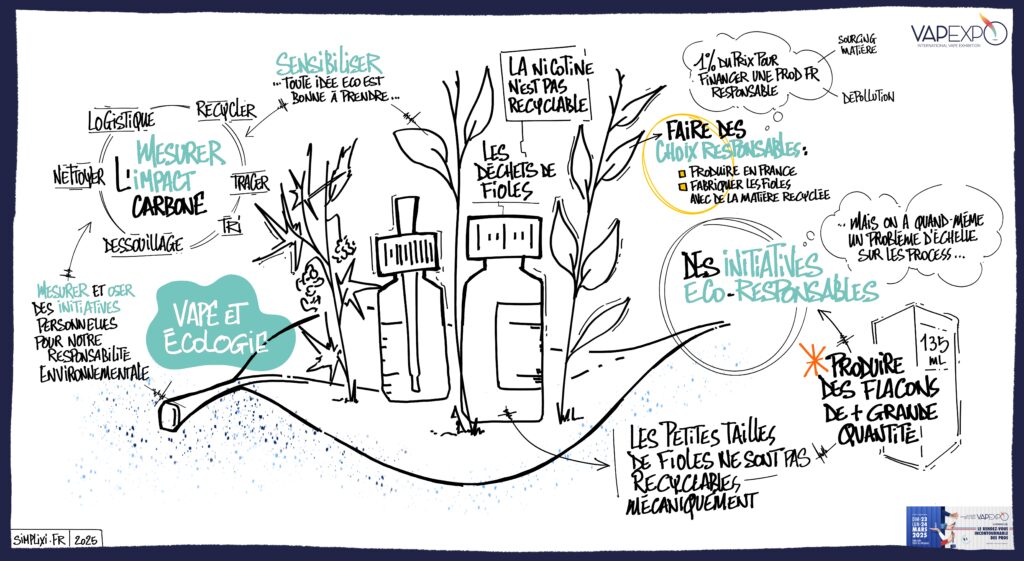 VAPEXPO
INTERNATIONAL VAPE EXHIBITION
SENSIBILISER
...TOUTE IDÉE ECO EST
BONNE À PRENDRE...
LOGISTIQUE
RECYCLER
NETTOYER
MESURER
L'IMPACT
CARBONE
TRACER
TRI
DESSOUILLAGE
MESURER ET OSER
DES INITIATIVES
PERSONNELLES
POUR NOTRE
RESPONSABILITE
ENVIRONNEMENTALE
VAPE ET
ÉCOLOGIE
LA NICOTINE
N'EST PAS
RECYCLABLE
LES
DÉCHETS DE
FIOLES
1% DU PRIX POUR
FINANCER UNE PROD FR
RESPONSABLE
SOURCING
MATIÈRE
DEPOLLUTION
FAIRE DES
CHOIX RESPONSABLES:
PRODUIRE EN FRANCE
FABRIQUER LES FIOLES
AVEC DE LA MATIÈRE RECYCLÉE
... MAIS ON A QUAND-MÊME
UN PROBLÈME D'ÉCHELLE
SUR LES PROCESS...
DES INITIATIVES
ECO-RESPONSABLES
135
ML
* PRODUIRE
DES FLACONS
DE + GRANDE
QUANTITÉ
LES PETITES TAILLES
DE FIOLES NE SONT PAS
RECYCLABLES
MÉCANIQUEMENT
SIMPLIXI.FR | 2025
DIM-23
LUN-24
MARS
2025
VAPEXPO
LE RENDEZ-VOUS
INCONTOURNABLE
DES PROS